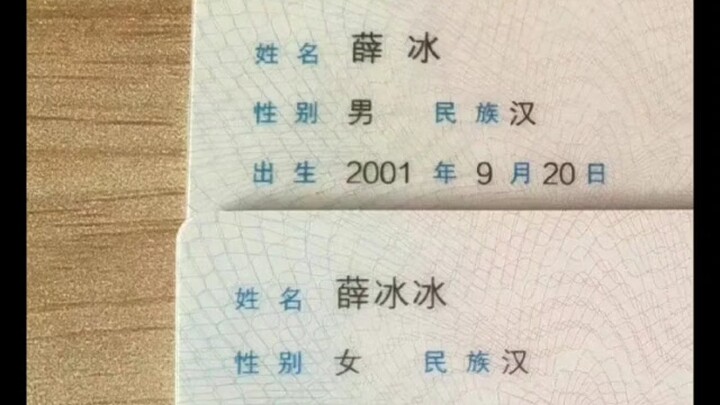 姓名 薛冰
性别 男 民族 汉
出生 2001 年 9 月 20 日
姓名 薛冰冰
性别 女 民族 汉